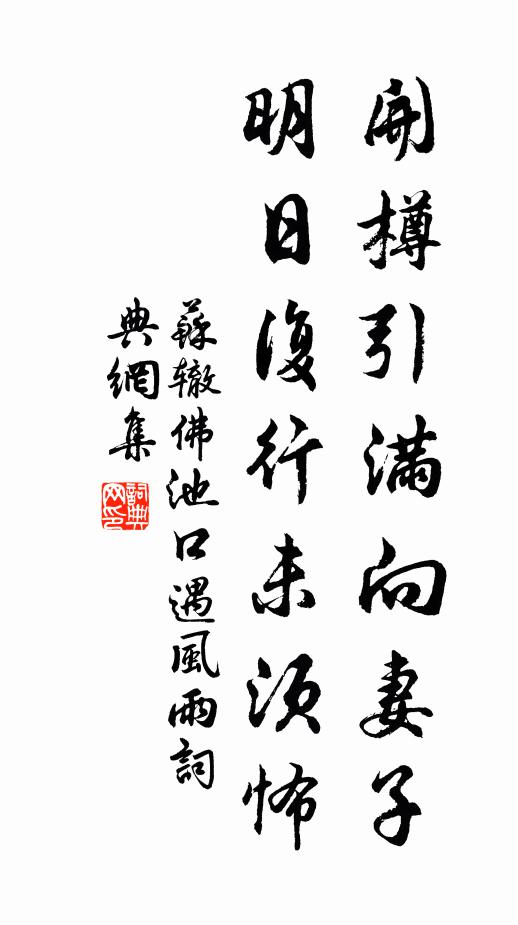 開樽引滿向妻子
明日復行未須怖
蘇辙佛池口遇風雨詞
典網集
詞典网印